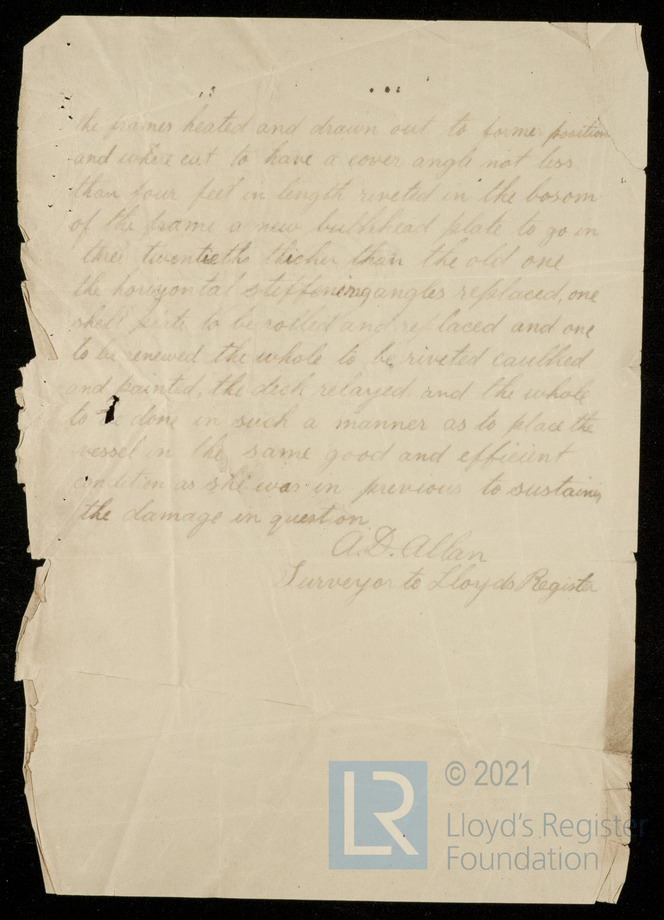 the frames heated and drawn out to former position
and where cut to have a cover angle not less
than four feet in length riveted in the bosom
of the frame a new bulkhead plate to go in
three twentieths thicker than the old one
the horizontal stiffening angles replaced, one
shell plate to be rolled and replaced and one
to be renewed the whole to be riveted caulked
and painted, the deck relayed and the whole
to be done in such a manner as to place the
vessel in the same good and efficient
condition as she was in previous to sustaining
the damage in question.
A. D. Allan
Surveyor to Lloyds Register
LR
© 2021
Lloyd's Register
Foundation